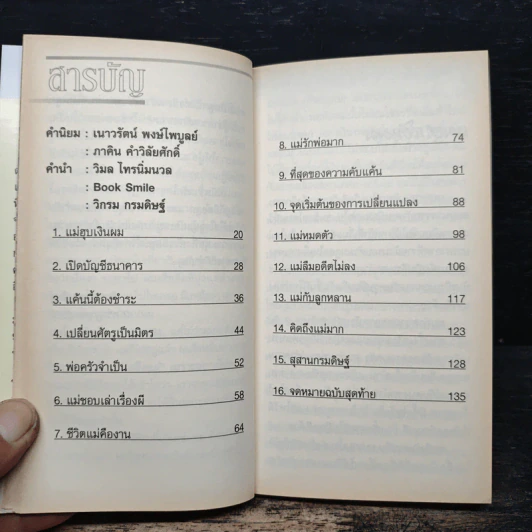 สารบัญ
คำนิยม : เนาวรัตน์ พงษ์ไพบูลย์
: ภาคิน คำวิลัยศักดิ์
คำนำ : วิมล ไทรนิ่มนวล
: Book Smile
: วิกรม กรมดิษฐ์
1. แม่ฮุบเงินผม 20
2. เปิดบัญชีธนาคาร 28
3. แค้นนี้ต้องชำระ 36
4. เปลี่ยนศัตรูเป็นมิตร 44
5. พ่อครัวจำเป็น 52
6. แม่ชอบเล่าเรื่องผี 58
7. ชีวิตแม่คืองาน 64
8. แม่รักพ่อมาก 74
9. ที่สุดของความคับแค้น 81
10. จุดเริ่มต้นของการเปลี่ยนแปลง 88
11. แม่หมดตัว 98
12. แม่ลืมอดีตไม่ลง 106
13. แม่กับลูกหลาน 117
14. คิดถึงแม่มาก 123
15. สุสานกรมดิษฐ์ 128
16. จดหมายฉบับสุดท้าย 135